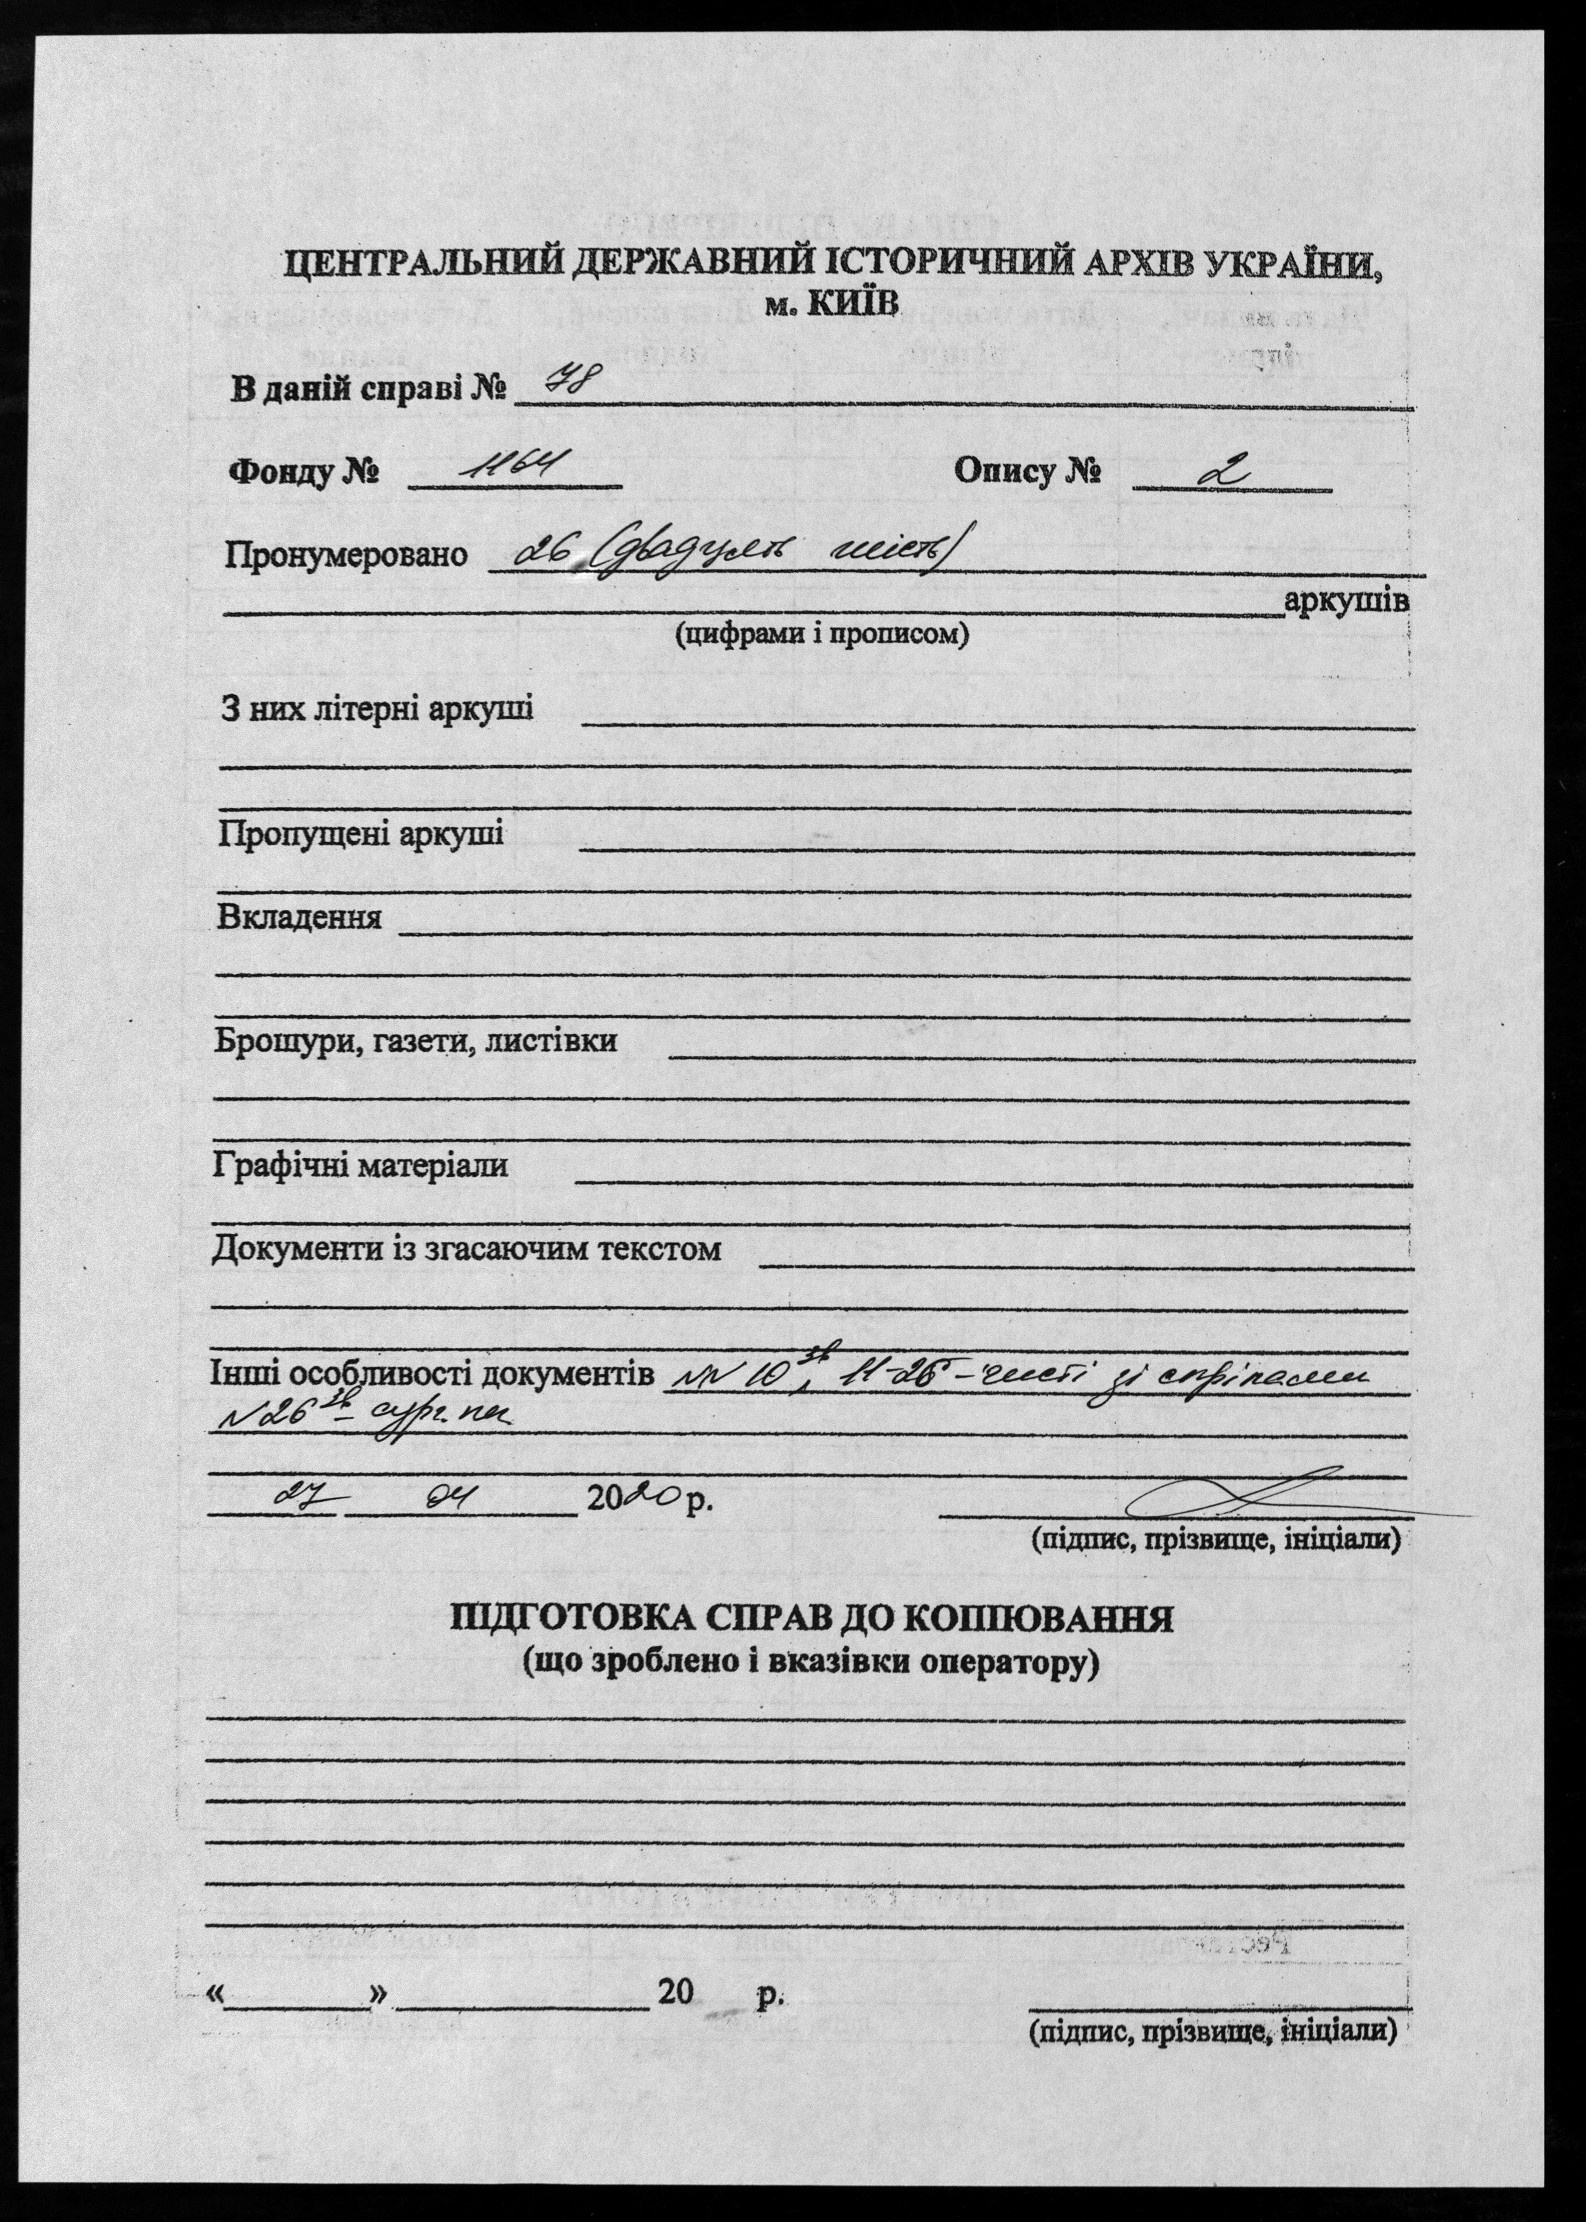 ЦЕНТРАЛЬНИЙ ДЕРЖАВНИЙ ІСТОРИЧНИЙ АРХІВ УКРАЇНИ,
м. КИЇВ
В даній справі № 78
Фонду № 1164 Опису № 2
Пронумеровано 26 (двадцять шість)
аркушів
(цифрами і прописом)
З них літерні аркуші
Пропущені аркуші
Вкладення
Брошури, газети, листівки
Графічні матеріали
Документи із згасаючим текстом
Інші особливості документів №№ 10зв, 11-26 - чисті зі скріпами
№26зв - сург. печ.
27 04 2020 р.
(підпис, прізвище, ініціали)
ПІДГОТОВКА СПРАВ ДО КОПІЮВАННЯ
(що зроблено і вказівки оператору)
« » 20 р.
(підпис, прізвище, ініціали)